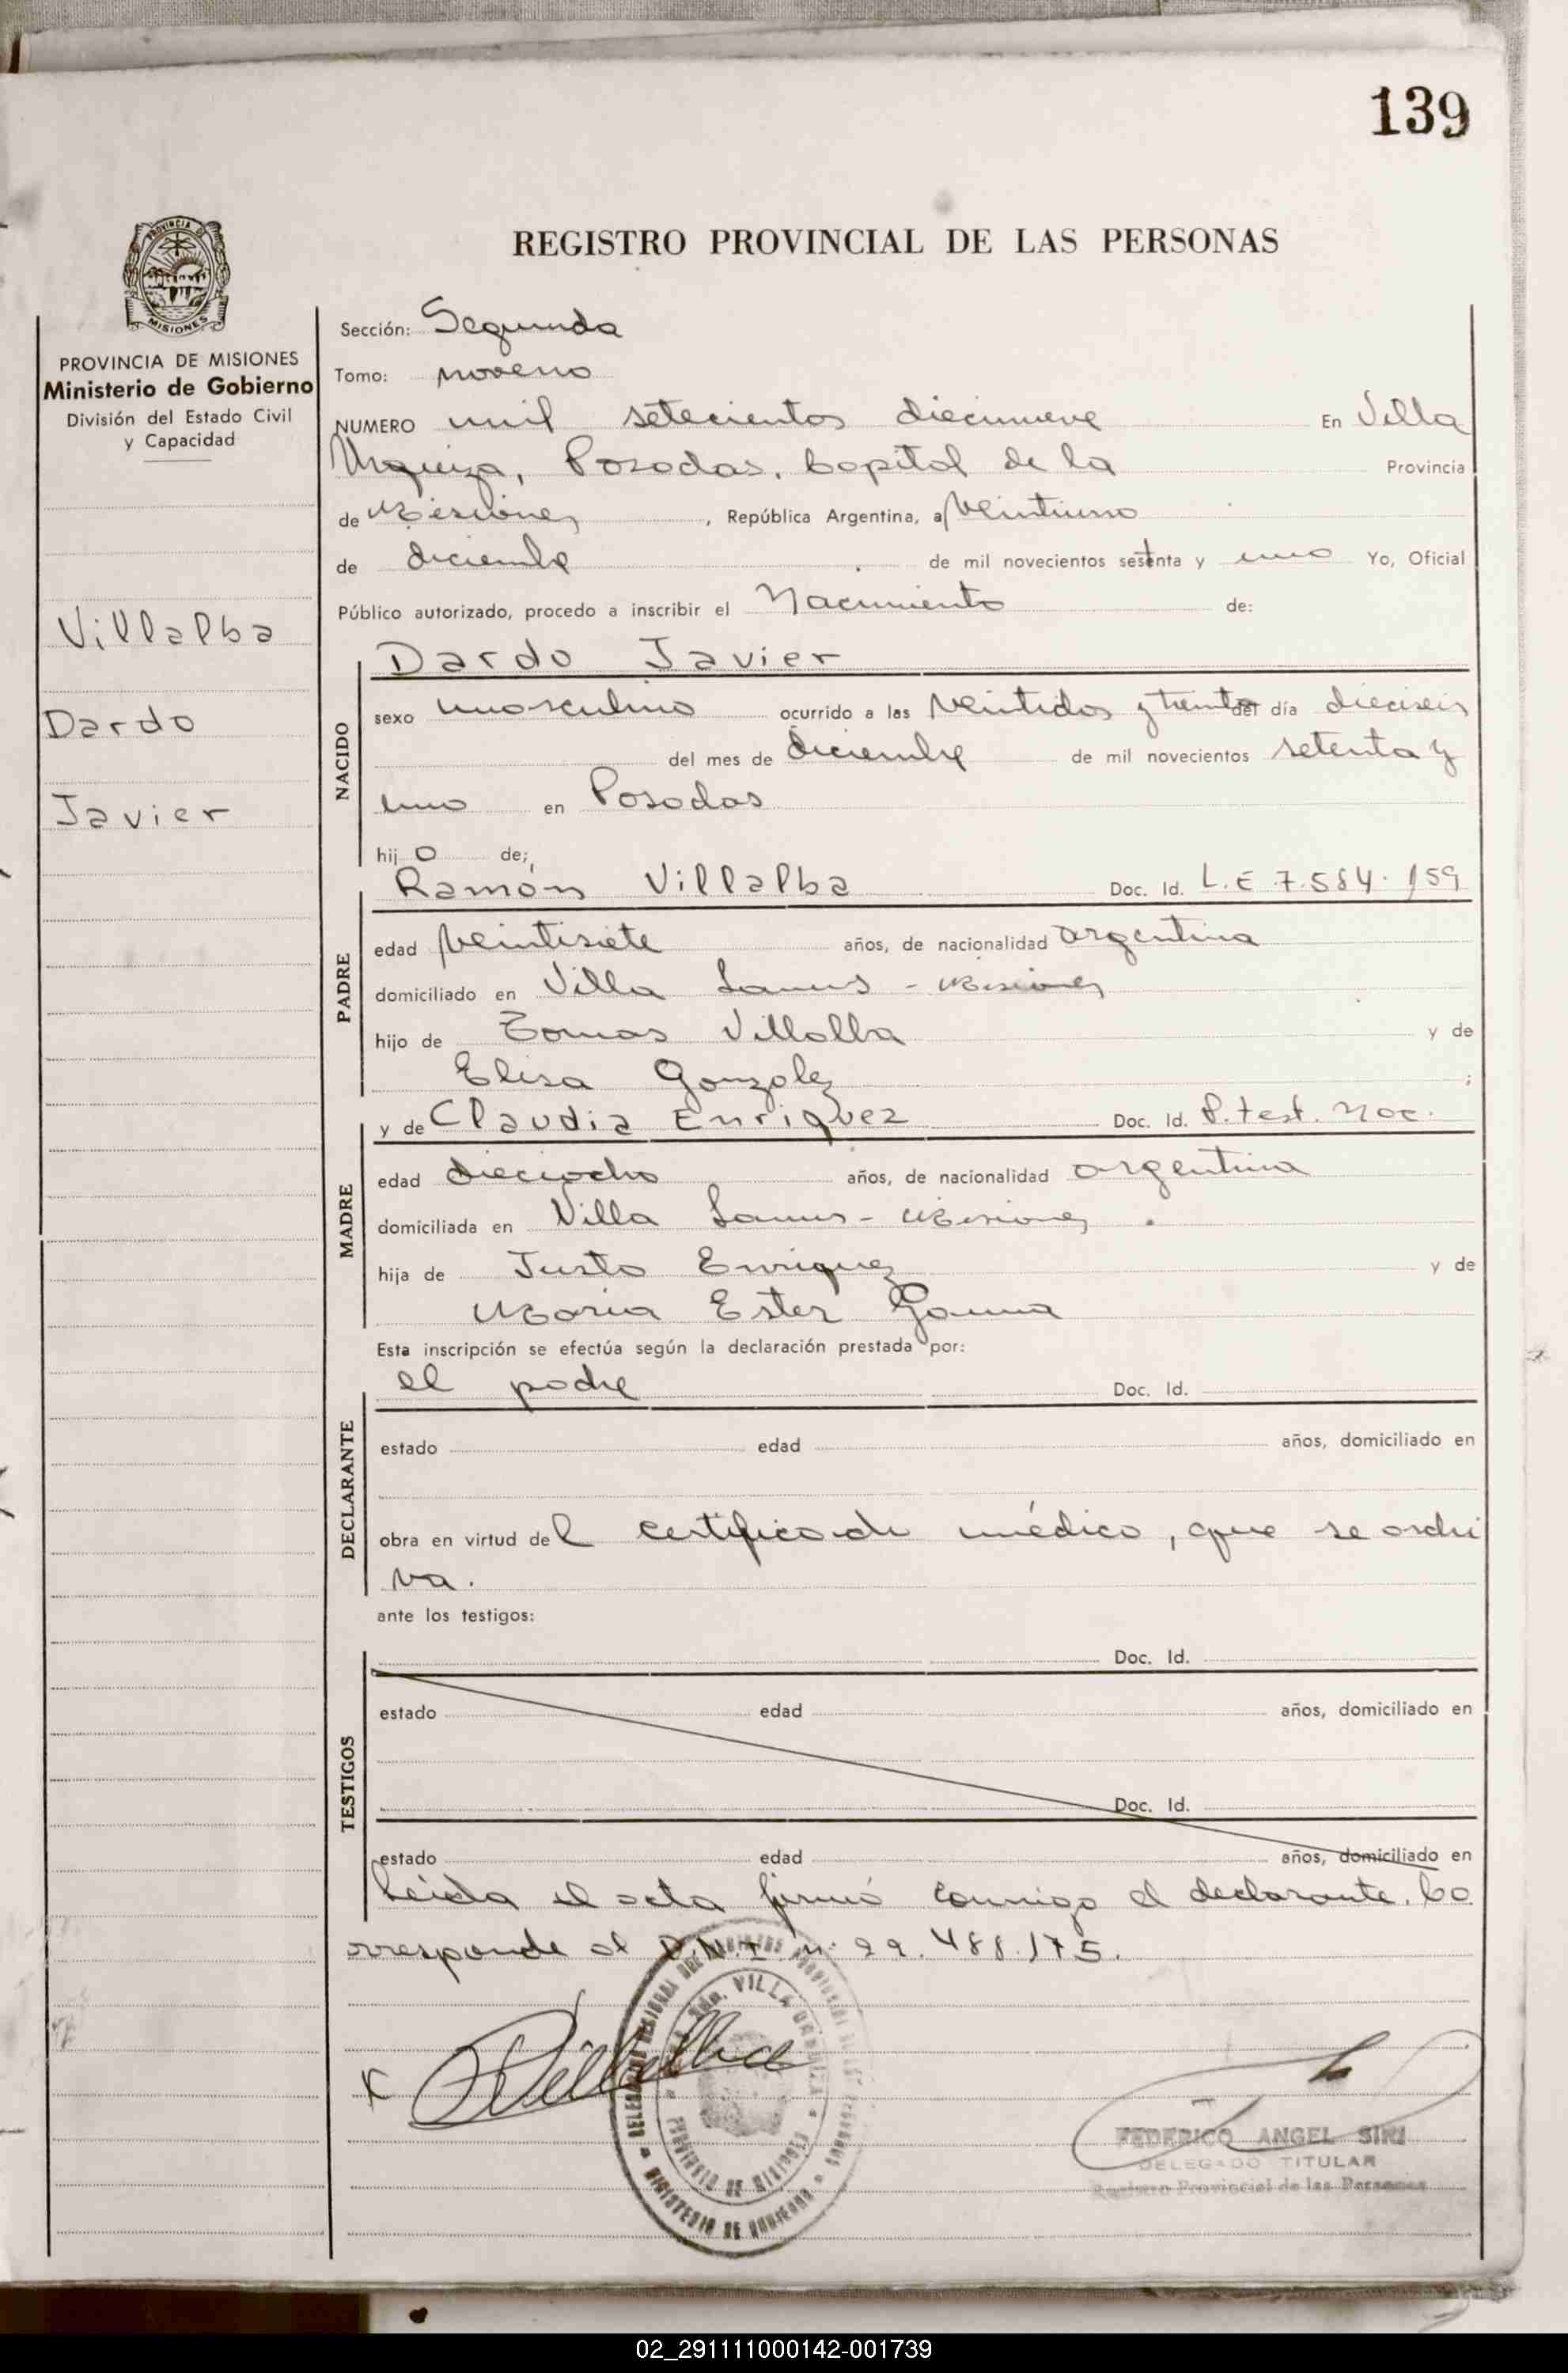 139
REGISTRO PROVINCIAL DE LAS PERSONAS
PROVINCIA DE MISIONES
PROVINCIA DE MISIONES
Ministerio de Gobierno
División del Estado Civil
y Capacidad
Villalba
Dardo
Javier
Sección: Segunda
Tomo: noveno
NUMERO mil setecientos diecinueve En Villa
Urquiza, Posadas, Capital de la Provincia
de Misiones, República Argentina, a veintiuno
de diciembre de mil novecientos setenta y uno Yo, Oficial
Público autorizado, procedo a inscribir el Nacimiento de:
NACIDO
Dardo Javier
sexo masculino ocurrido a las veintidos y treinta del día dieciseis
del mes de diciembre de mil novecientos setenta y
uno en Posadas
hijo de;
PADRE
Ramón Villalba Doc. Id. L.E 7.584.159
edad veintisiete años, de nacionalidad argentina
domiciliado en Villa Lanus - Misiones
hijo de Tomas Villalba y de
Elisa Gonzalez ;
MADRE
y de Claudia Enriquez Doc. Id. P. test. Nac.
edad dieciocho años, de nacionalidad argentina
domiciliada en Villa Lanus - Misiones.
hija de Justo Enriquez y de
Maria Ester
Esta inscripción se efectúa según la declaración prestada por:
DECLARANTE
el padre Doc. Id.
estado edad años, domiciliado en
obra en virtud del certificado médico, que se archi
va.
ante los testigos:
TESTIGOS
Doc. Id.
estado edad años, domiciliado en
Doc. Id.
estado edad años, domiciliado en
Leida el acta firmó conmigo el declarante. Co
rresponde al D.N.I. n: 22.488.175.
x Villalba
VILLA URQUIZA
PROVINCIA DE MISIONES
MINISTERIO DE GOBIERNO
FEDERICO ANGEL SIRI
DELEGADO TITULAR
Registro Provincial de las Personas
02_291111000142-001739